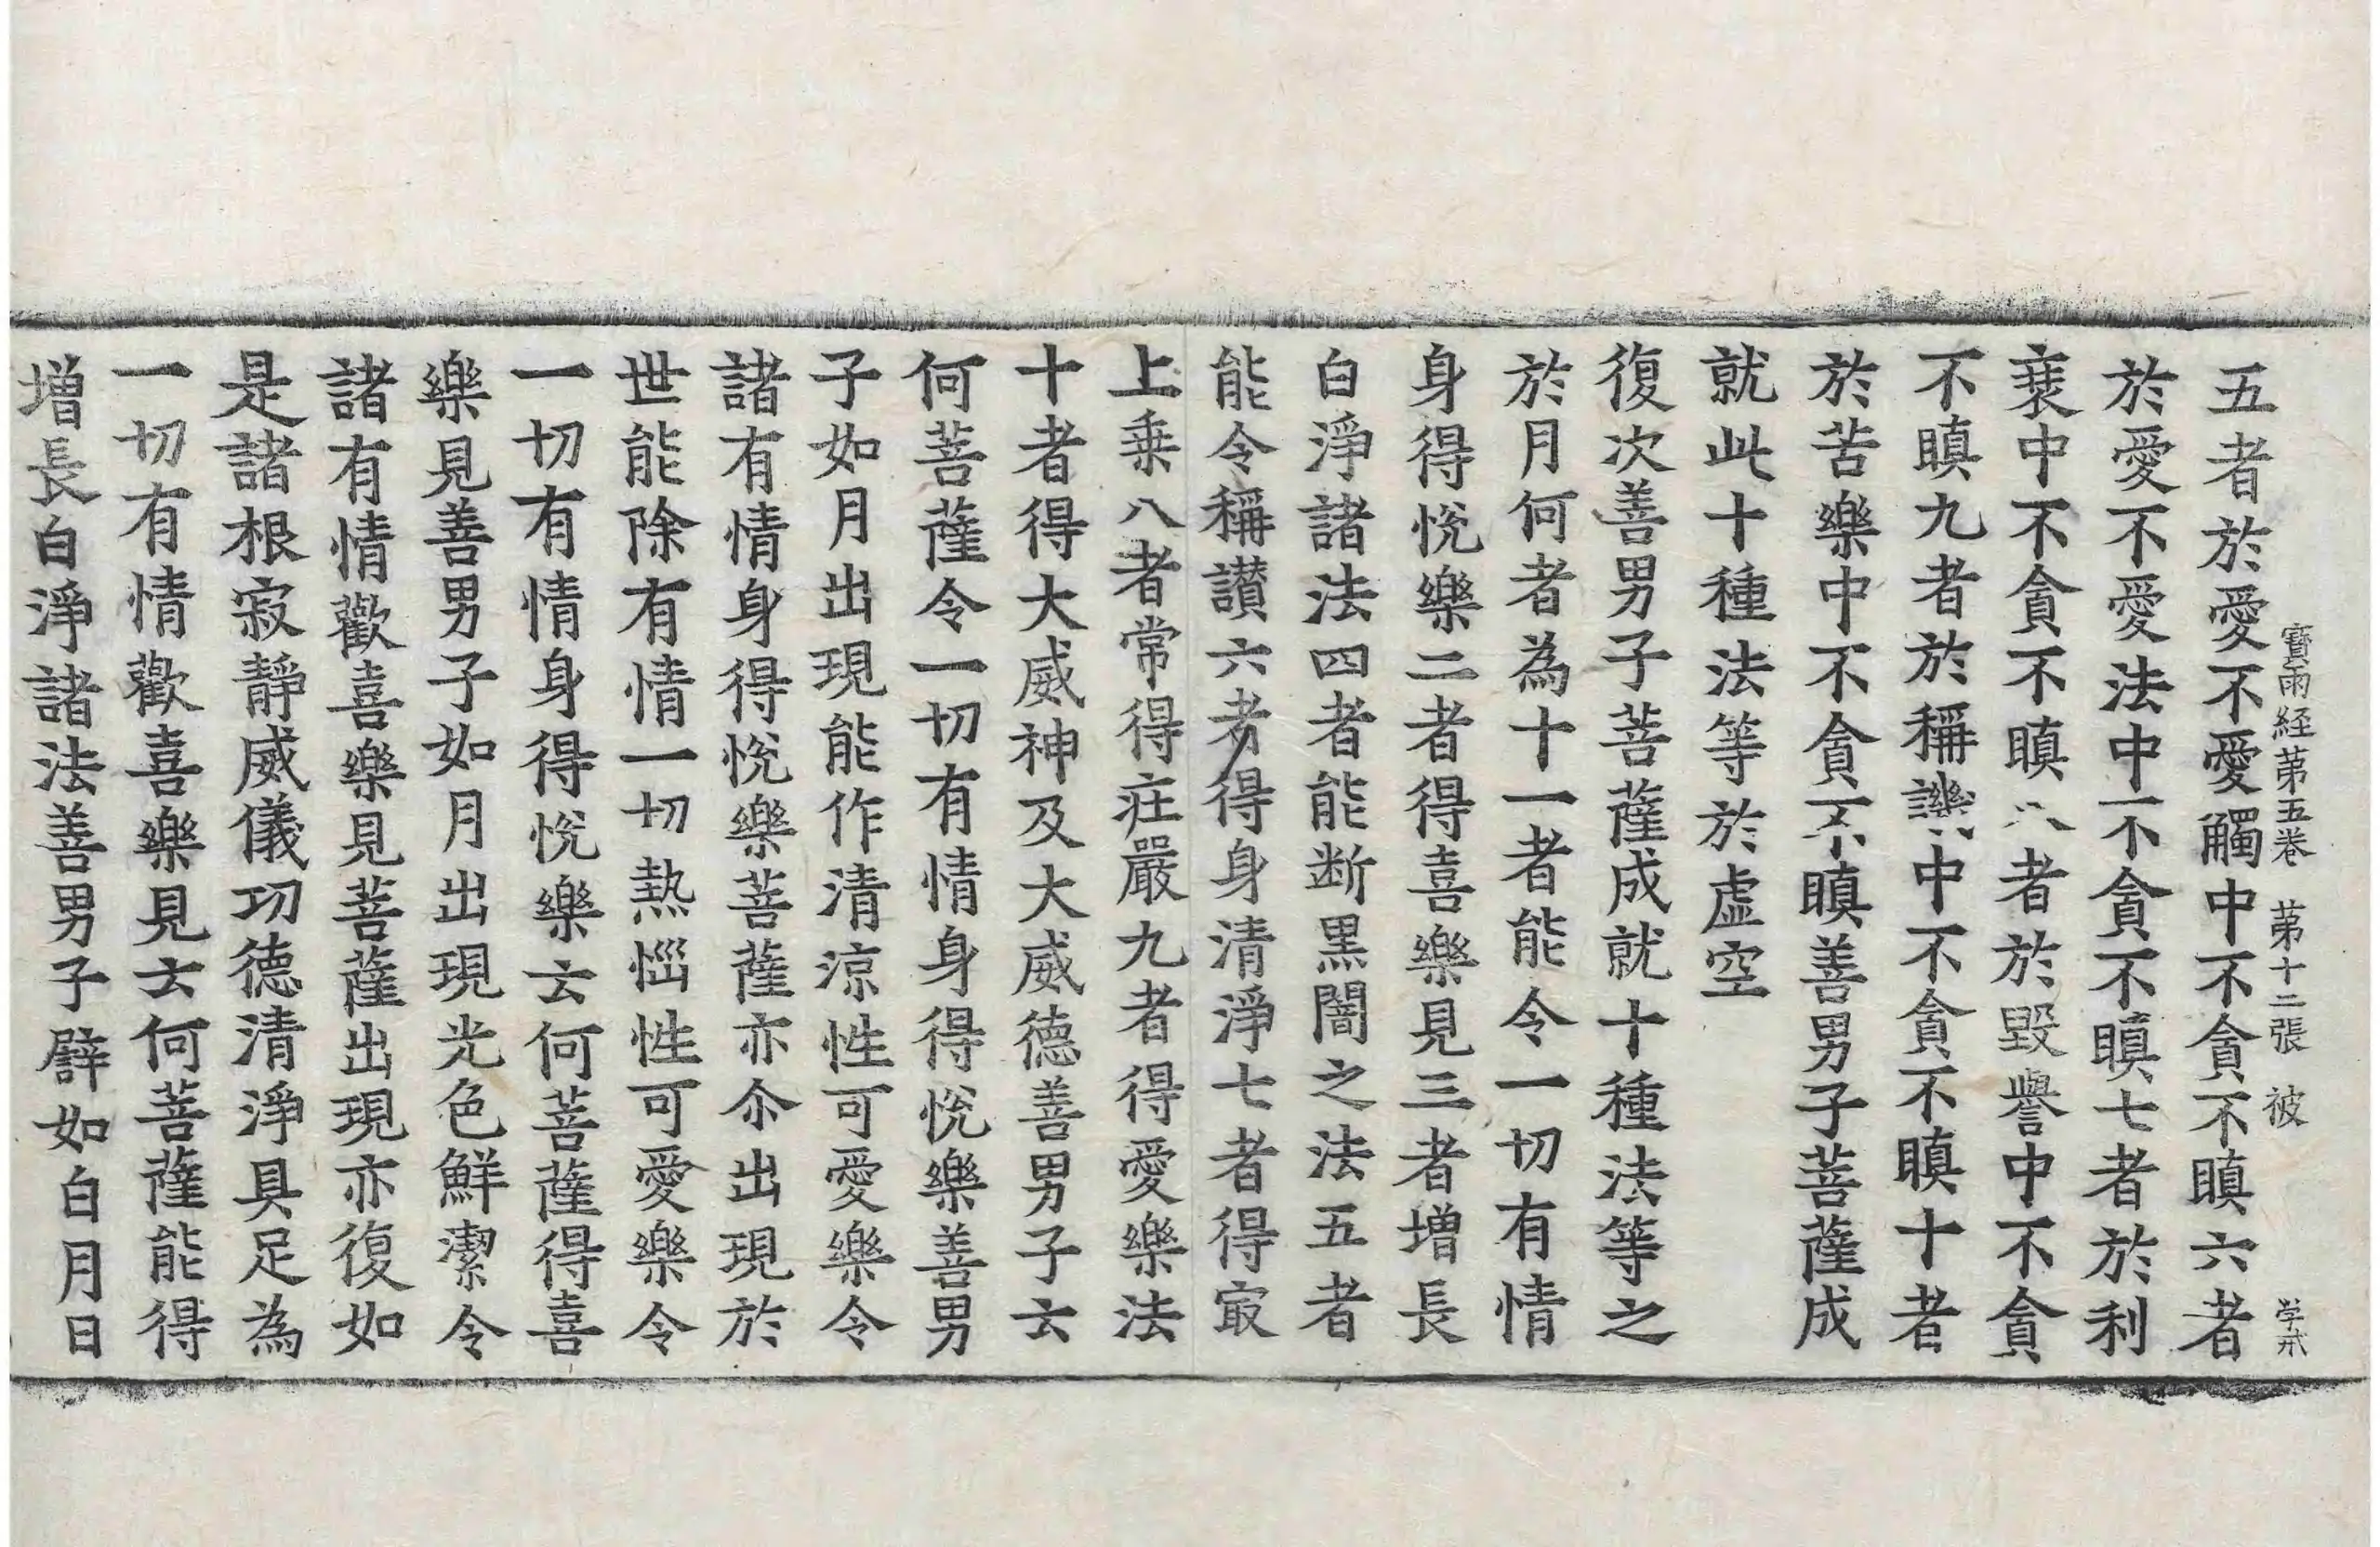 寳雨経苐五卷　苐十二張　被　学戒
五者於愛不愛觸中不貪不瞋六者
於愛不愛法中不貪不瞋七者於利
衰中不貪不瞋八者於毀譽中不貪
不瞋九者於稱譏中不貪不瞋十者
於苦樂中不貪不瞋善男子菩薩成
就此十種法等於虛空
復次善男子菩薩成就十種法等之
於月何者為十一者能令一切有情
身得悅樂二者得喜樂見三者増長
白淨諸法四者能断黒闇之法五者
能令稱讃六者得身清淨七者得㝡
上乗八者常得庄嚴九者得愛樂法
十者得大威神及大威德善男子云
何菩薩令一切有情身得悅樂善男
子如月出現能作清涼性可愛樂令
諸有情身得悅樂菩薩亦尒出現於
世能除有情一切熱惱性可愛樂令
一切有情身得悅樂云何菩薩得喜
樂見善男子如月出現光色鮮潔令
諸有情歡喜樂見菩薩出現亦復如
是諸根寂靜威儀功德清淨具足為
一切有情歡喜樂見云何菩薩能得
増長白淨諸法善男子譬如白月日